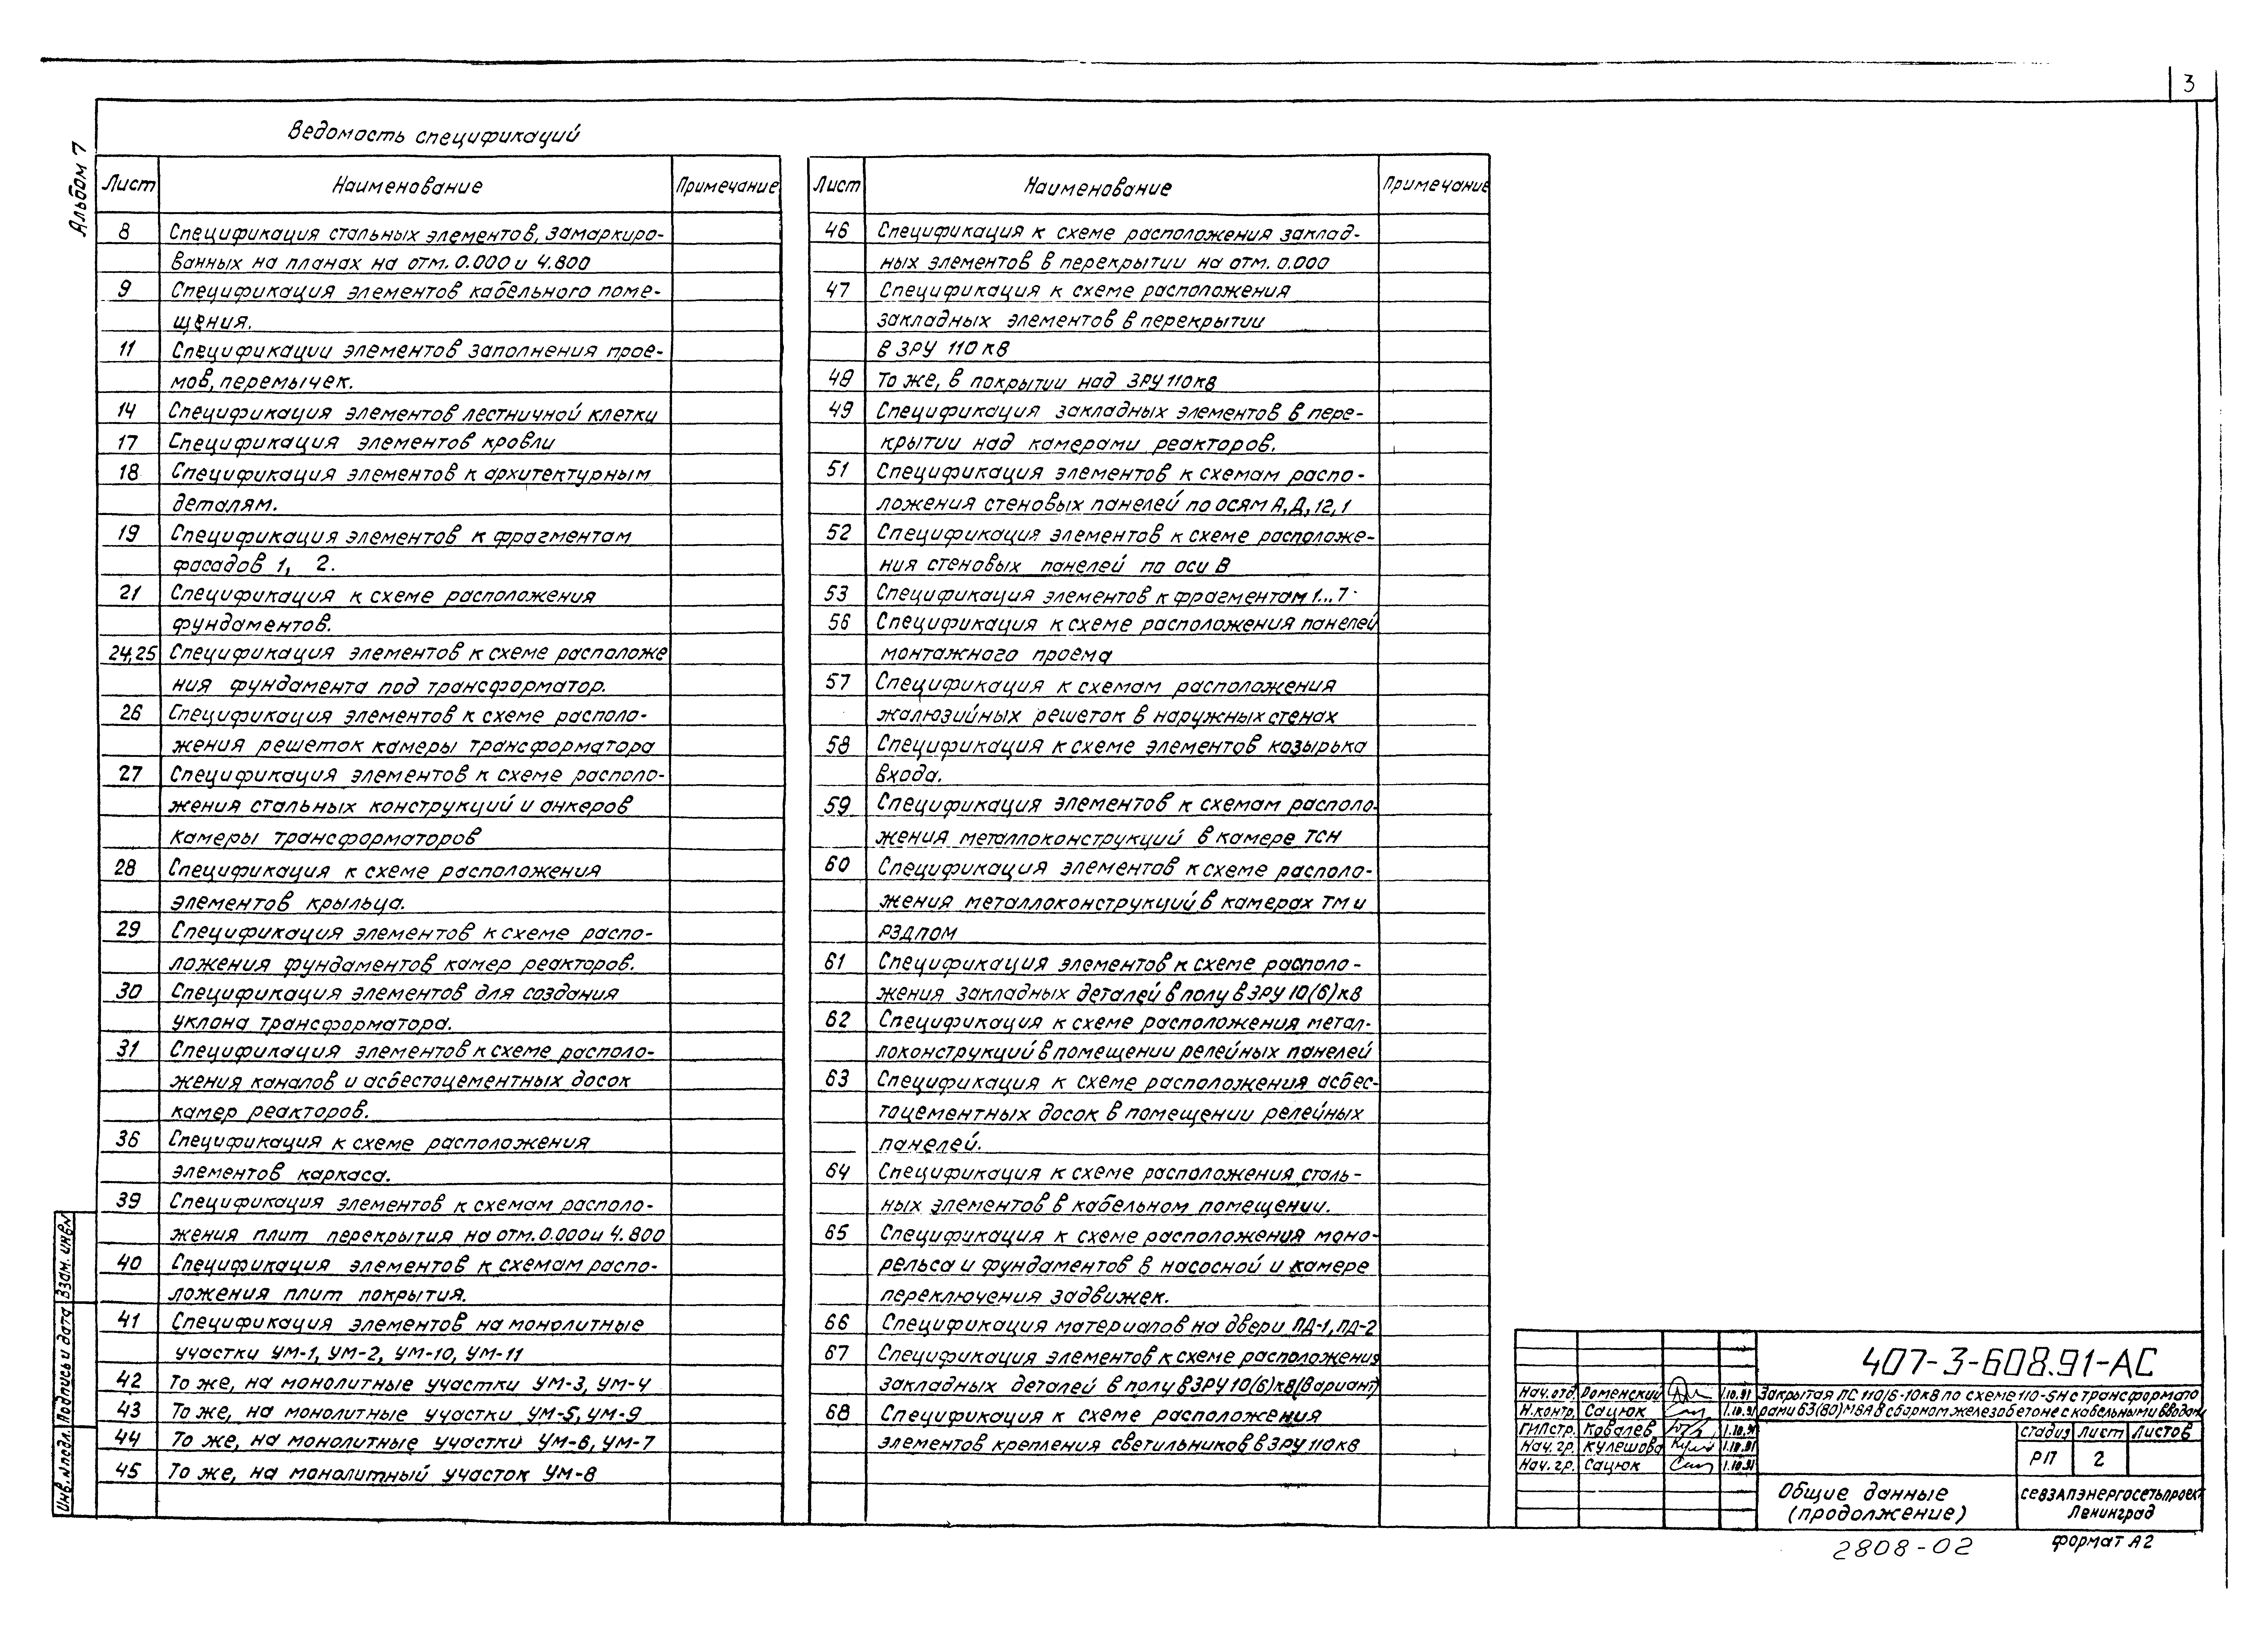 3
Альбом 7
Ведомость спецификаций
Лист Наименование Примечание
8 Спецификация стальных элементов, замаркиро-
ванных на планах на отм. 0.000 и 4.800
9 Спецификация элементов кабельного поме-
щения.
11 Спецификации элементов заполнения прое-
мов, перемычек.
14 Спецификация элементов лестничной клетки
17 Спецификация элементов кровли
18 Спецификация элементов к архитектурным
деталям.
19 Спецификация элементов к фрагментам
фасадов 1, 2.
21 Спецификация к схеме расположения
фундаментов.
24,25 Спецификация элементов к схеме расположе
ния фундамента под трансформатор.
26 Спецификация элементов к схеме располо-
жения решеток камеры трансформатора
27 Спецификация элементов к схеме располо-
жения стальных конструкций и анкеров
камеры трансформаторов
28 Спецификация к схеме расположения
элементов крыльца.
29 Спецификация элементов к схеме распо-
ложения фундаментов камер реакторов.
30 Спецификация элементов для создания
уклона трансформатора.
31 Спецификация элементов к схеме располо-
жения каналов и асбестоцементных досок
камер реакторов.
36 Спецификация к схеме расположения
элементов каркаса.
39 Спецификация элементов к схемам располо-
жения плит перекрытия на отм. 0.000 и 4.800
40 Спецификация элементов к схемам распо-
ложения плит покрытия.
41 Спецификация элементов на монолитные
участки УМ-1, УМ-2, УМ-10, УМ-11
42 То же, на монолитные участки УМ-3, УМ-4
43 То же, на монолитные участки УМ-5, УМ-9
44 То же, на монолитные участки УМ-6, УМ-7
45 То же, на монолитный участок УМ-8
Лист Наименование Примечание
46 Спецификация к схеме расположения заклад-
ных элементов в перекрытии на отм. 0.000
47 Спецификация к схеме расположения
закладных элементов в перекрытии
в ЗРУ 110 кВ
48 То же, в покрытии над ЗРУ 110 кВ
49 Спецификация закладных элементов в пере-
крытии над камерами реакторов.
51 Спецификация элементов к схемам распо-
ложения стеновых панелей по осям А, Д, 12, 1
52 Спецификация элементов к схеме расположе-
ния стеновых панелей по оси В
53 Спецификация элементов к фрагментам 1...7
56 Спецификация к схеме расположения панелей
монтажного проема
57 Спецификация к схемам расположения
жалюзийных решеток в наружных стенах
58 Спецификация к схеме элементов козырька
входа.
59 Спецификация элементов к схемам располо-
жения металлоконструкций в камере ТСН
60 Спецификация элементов к схеме располо-
жения металлоконструкций в камерах ТМ и
РЗДПОМ
61 Спецификация элементов к схеме располо-
жения закладных деталей в полу в ЗРУ 10(6) кВ
62 Спецификация к схеме расположения метал-
локонструкций в помещении релейных панелей
63 Спецификация к схеме расположения асбес-
тоцементных досок в помещении релейных
панелей.
64 Спецификация к схеме расположения сталь-
ных элементов в кабельном помещении.
65 Спецификация к схеме расположения моно-
рельса и фундаментов в насосной и камере
переключения задвижек.
66 Спецификация материалов на двери ПД-1, ПД-2
67 Спецификация элементов к схеме расположения
закладных деталей в полу в ЗРУ 10(6) кВ (вариант)
68 Спецификация к схеме расположения
элементов крепления светильников в ЗРУ 110 кВ
Инв. N подл. Подпись и дата Взам. инв N
407-3-608.91-АС
Нач. отд. Роменский 1.10.91 Закрытая ПС 110/6-10 кВ по схеме 110-5Н с трансформато
Н. контр. Сацюк 1.10.91 рами 63(80) МВА в сборном железобетоне с кабельными вводами
ГИПстр. Ковалев 1.10.91 стадия лист листов
Нач. гр. Кулешова 1.10.91 РП 2
Нач. гр. Сацюк 1.10.91
Общие данные
(продолжение)
СЕВЗАПЭНЕРГОСЕТЬПРОЕКТ
Ленинград
2808-02
формат А2